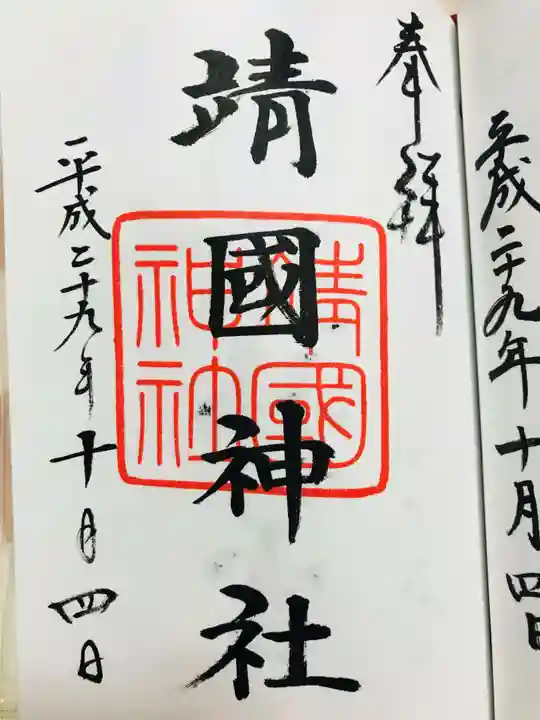 平成二十九年十月四日
奉拝
靖國神社
靖國
神社
平成二十九年十月四日